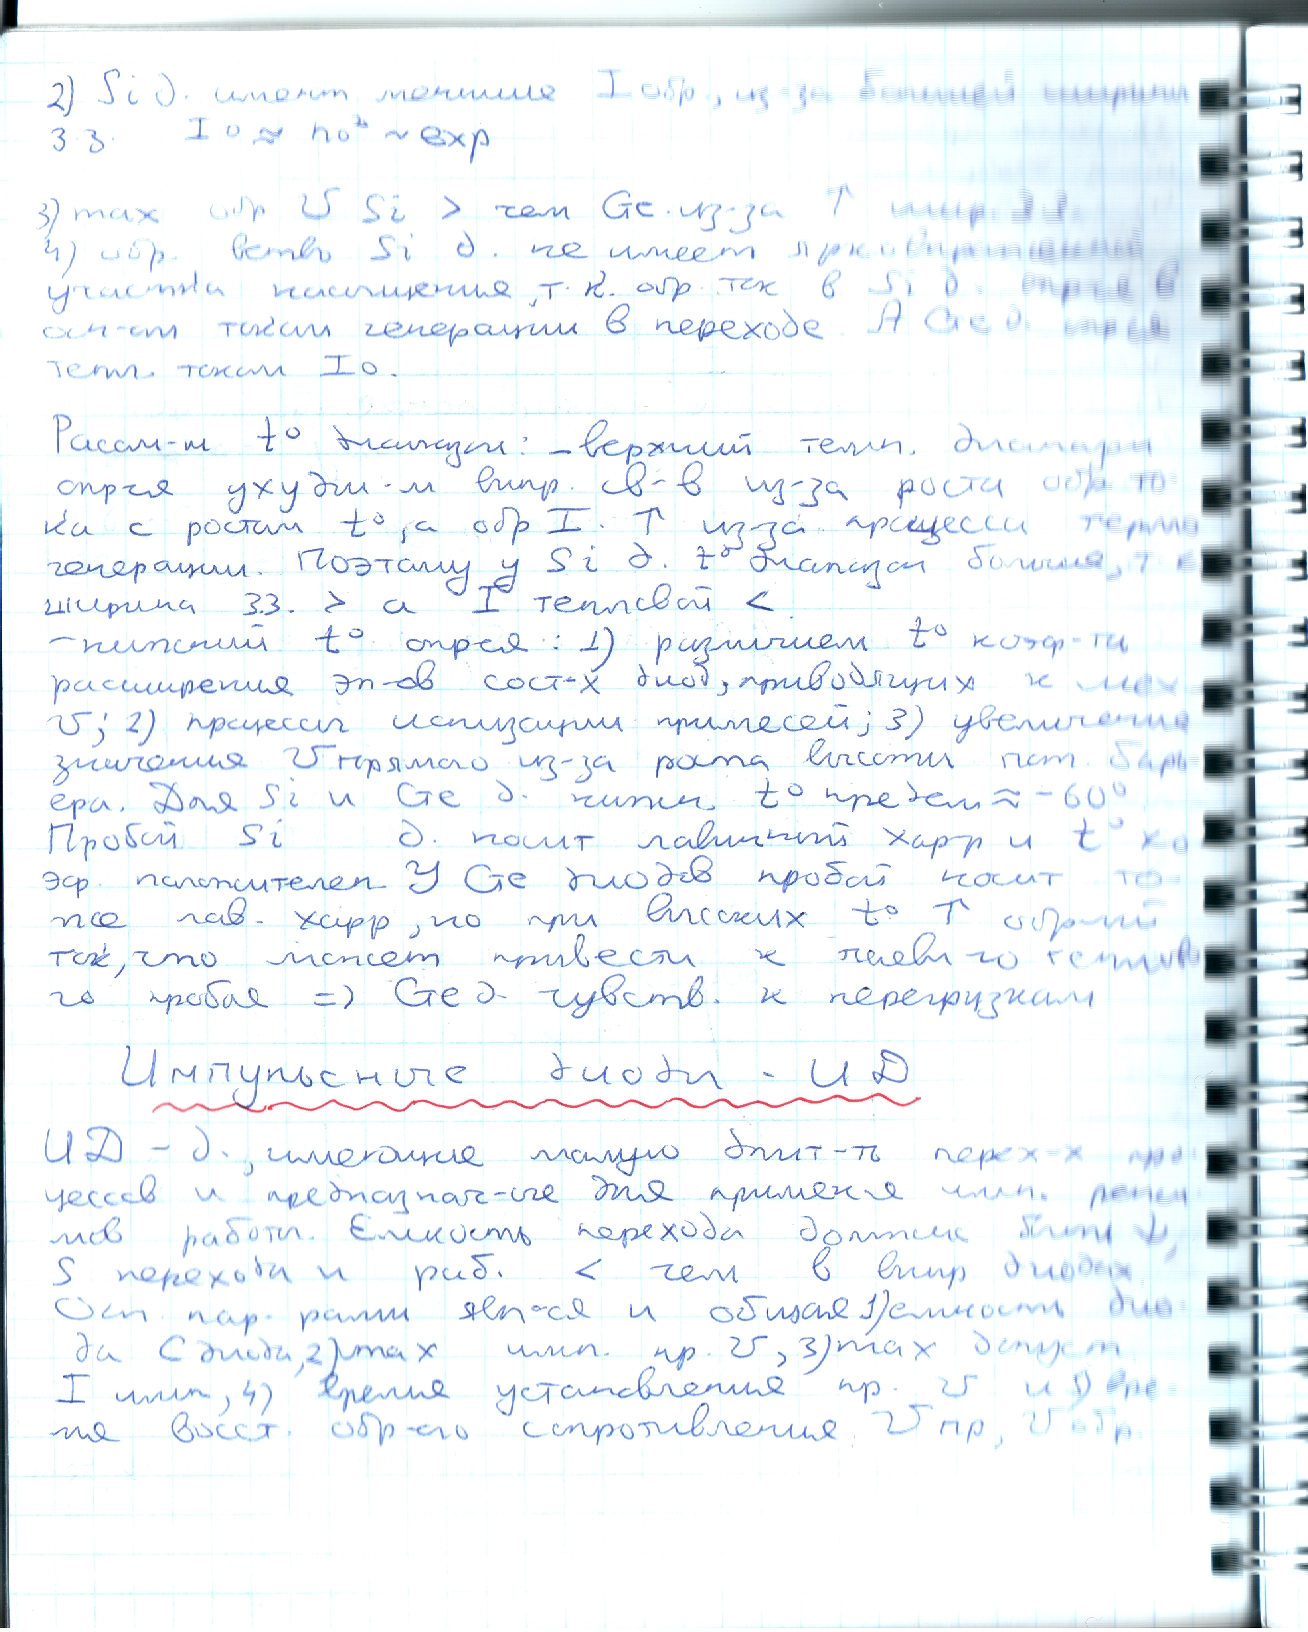 2) Si д. имеют меньшие I обр., из-за большей ширины
З.З. I0 ≈ n0² ~ exp
3) max обр U Si > чем Ge из-за ↑ шир. З.З.
4) обр. ветвь Si д. не имеет ярковыраженный
участка насыщения, т.к. обр. ток в Si д. опр-ся в
осн-ом током генерации в переходе. А Ge д. опр-ся
тепл. током I0.
Рассм-м t° диапазон: – верхний темп. диапазон
опр-ся ухудш-м выпр. св-в из-за роста обр. то-
ка с ростом t°, а обр I. ↑ из-за процесса термо
генерации. Поэтому у Si д. t° диапазон больше, т.к
ширина З.З. > а I тепловой <
– нижний t° опр-ся: 1) различием t° коэф-та
расширения эл-ов сост-х диод, приводящих к мех
U; 2) процессы ионизации примесей; 3) увеличение
значения U прямого из-за роста высоты пот. барь-
ера. Для Si и Ge д. нижн. t° предел ≈ -60°
Пробой Si д. носит лавинный хар-р и t° ко
эф. положителен У Ge диодов пробой носит то-
же лав. хар-р, но при высоких t° ↑ обр-ый
ток, что может привести к появл-ю теплово
го пробоя => Ge д. чувств. к перегрузкам
Импульсные диоды - ИД
ИД – д., имеющие малую длит-ть перех-х про-
цессов и предназнач-ые для примен-я имп. режи-
мов работы. Ёмкость перехода должна быть ↓,
S перехода и раб. < чем в выпр диодах
Осн. пар-рами явл-ся и общая 1) ёмкость дио-
да С диода, 2) max имп. пр. U, 3) max допуст.
I имп, 4) время установления пр. U и 5) вре-
мя восст. обр-ого сопротивления. U пр, U обр.